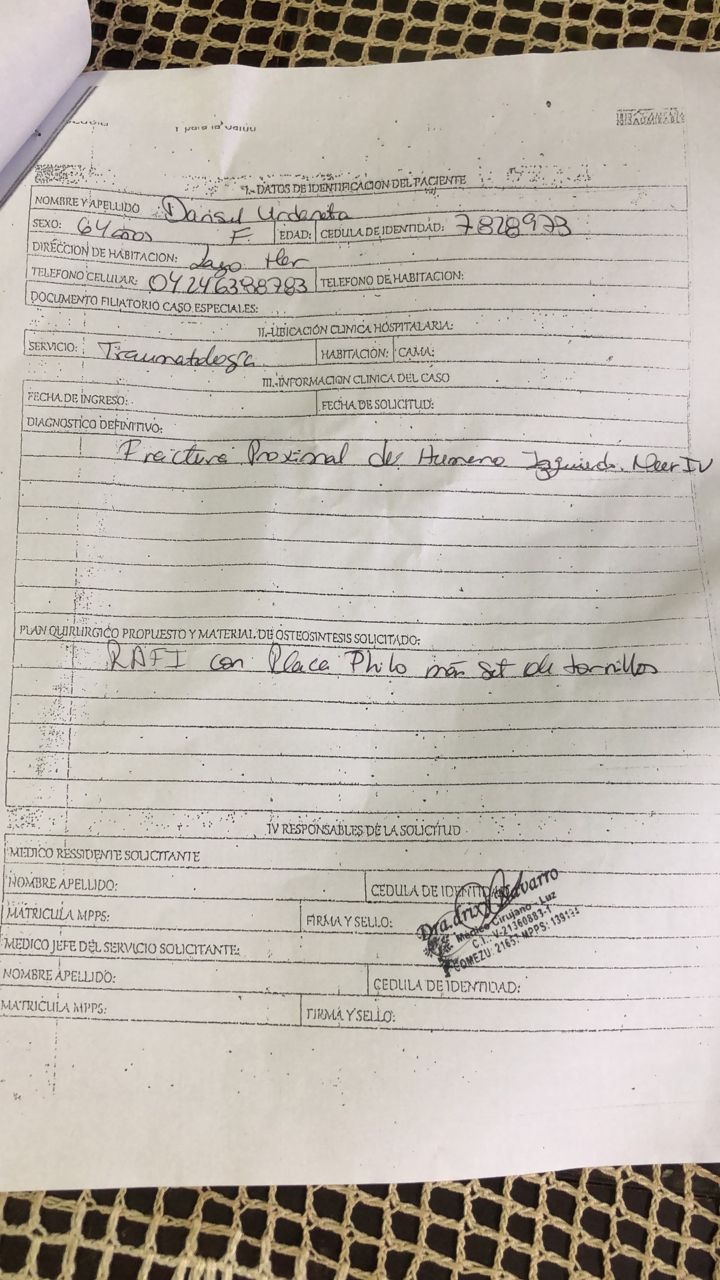 1 para la
I.-DATOS DE IDENTIFICACION DEL PACIENTE
NOMBRE Y APELLIDO Danisel Urdaneta
SEXO: 64 años F EDAD: CEDULA DE IDENTIDAD: 7828973
DIRECCION DE HABITACION: Lago Mar
TELEFONO CELULAR: 04246388783 TELEFONO DE HABITACION:
DOCUMENTO FILIATORIO CASO ESPECIALES:
II.-UBICACIÓN CLINICA HOSPITALARIA:
SERVICIO: Traumatología HABITACIÓN: CAMA:
III.-INFORMACION CLINICA DEL CASO
FECHA DE INGRESO: FECHA DE SOLICITUD:
DIAGNOSTICO DEFINITIVO:
Fractura Proximal de Humero Izquierdo. Neer IV
PLAN QUIRURGICO PROPUESTO Y MATERIAL DE OSTEOSINTESIS SOLICITADO:
RAFI con Placa Philo más set de tornillos
IV RESPONSABLES DE LA SOLICITUD
MEDICO RESSIDENTE SOLICITANTE
NOMBRE APELLIDO: CEDULA DE IDENTIDAD:
MATRICULA MPPS: FIRMA Y SELLO:
Navarro
Médico Cirujano - Luz
C.I. V-21360883-1
COMEZU: 21657 MPPS:
MEDICO JEFE DEL SERVICIO SOLICITANTE:
NOMBRE APELLIDO: CEDULA DE IDENTIDAD:
MATRICULA MPPS: FIRMA Y SELLO: